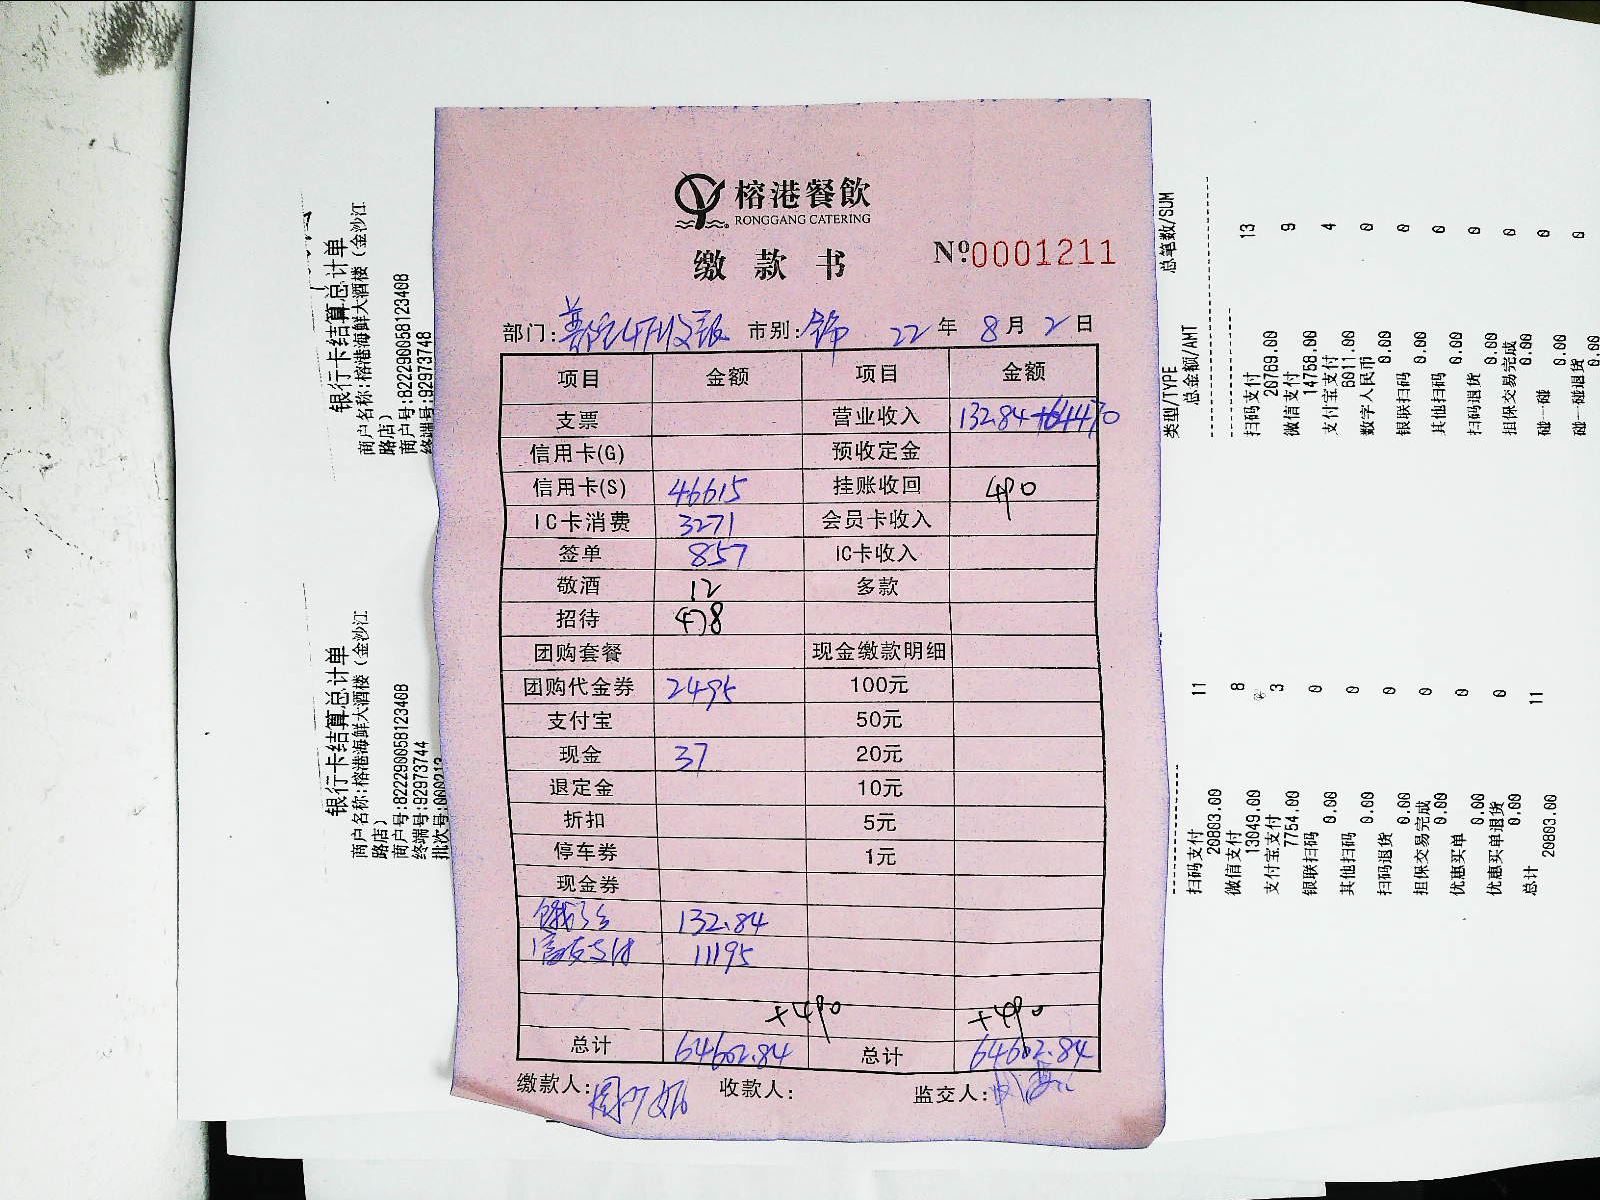 榕港餐飲
RONGGANG CATERING
缴款书
№0001211
部门: 市别: 22年8月2日
项目 金额 项目 金额
支票 营业收入 132.84+64470
信用卡(G) 预收定金
信用卡(S) 46615 挂账收回 490
IC卡消费 3271 会员卡收入
签单 857 IC卡收入
敬酒 12 多款
招待 478
团购套餐 现金缴款明细
团购代金券 2495 100元
支付宝 50元
现金 37 20元
退定金 10元
折扣 5元
停车券 1元
现金券
饿了么 132.84
11195
+490 +490
总计 64602.84 总计 64602.84
缴款人: 收款人: 监交人:
银行卡结算总计单
商户名称:榕港海鲜大酒楼（金沙江
路店）
商户号:822290058123408
终端号:92973748
类型/TYPE 总笔数/SUM
总金额/AMT
扫码支付 13
20769.00
微信支付 9
14758.00
支付宝支付 4
6011.00
数字人民币 0
0.00
银联扫码 0
0.00
其他扫码 0
0.00
扫码退货 0
0.00
担保交易完成 0
0.00
碰一碰 0
0.00
碰一碰退货 0
0.00
银行卡结算总计单
商户名称:榕港海鲜大酒楼（金沙江
路店）
商户号:822290058123408
终端号:92973744
批次号:000213
扫码支付 11
20803.00
微信支付 8
13049.00
支付宝支付 3
7754.00
银联扫码 0
0.00
其他扫码 0
0.00
扫码退货 0
0.00
担保交易完成 0
0.00
优惠买单 0
0.00
优惠买单退货 0
0.00
总计 11
20803.00